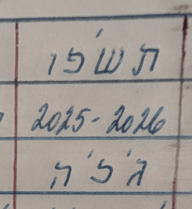 תשפ'ו
2025-2026
ג'כ'ה